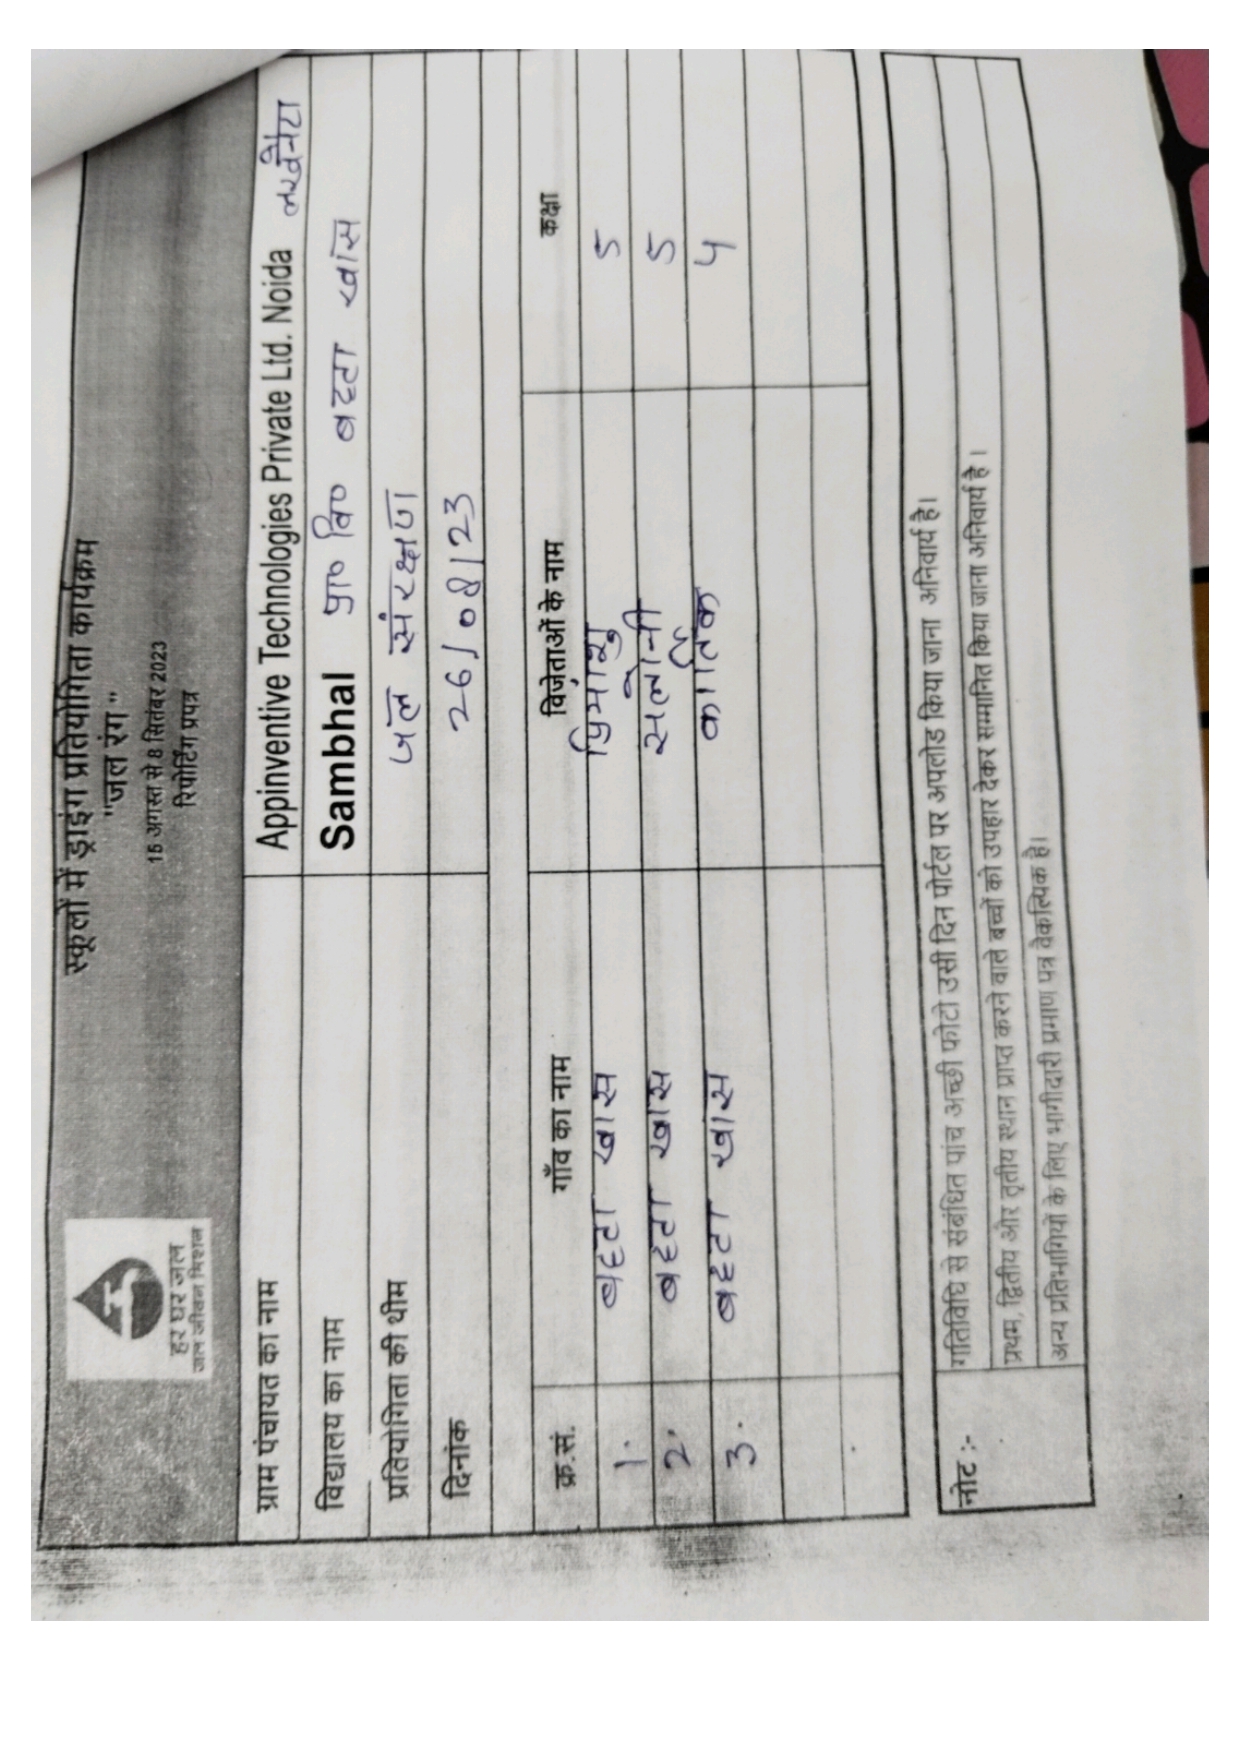 हर घर जल
जल जीवन मिशन
स्कूलों में ड्राइंग प्रतियोगिता कार्यक्रम
"जल रंग"
15 अगस्त से 8 सितंबर 2023
रिपोर्टिंग प्रपत्र
ग्राम पंचायत का नाम Appinventive Technologies Private Ltd. Noida
विद्यालय का नाम Sambhal प्रा० वि० बहटा खास
प्रतियोगिता की थीम जल संरक्षण
दिनांक 26/08/23
क्र.सं. गाँव का नाम विजे़ताओं के नाम कक्षा
1. बहटा खास 5
2. बहटा खास सलोनी 5
3. बहटा खास कार्तिक
नोट :- गतिविधि से संबंधित पांच अच्छी फोटो उसी दिन पोर्टल पर अपलोड किया जाना अनिवार्य है।
प्रथम, द्वितीय और तृतीय स्थान प्राप्त करने वाले बच्चों को उपहार देकर सम्मानित किया जाना अनिवार्य है।
अन्य प्रतिभागियों के लिए भागीदारी प्रमाण पत्र वैकल्पिक है।